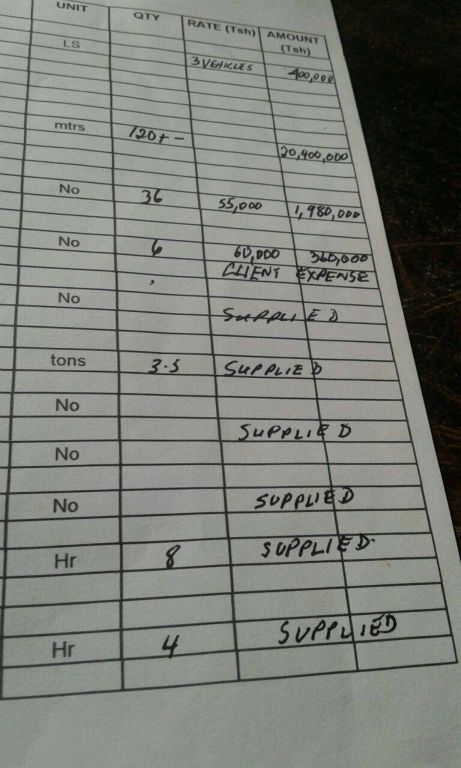 UNIT QTY RATE (Tsh) AMOUNT (Tsh)
LS 3 VEHICLES 400,000
mtrs 120+- 20,400,000
No 36 55,000 1,980,000
No 6 60,000 360,000
CLIENT EXPENSE
No SUPPLIED
tons 3.5 SUPPLIED
No
SUPPLIED
No
No SUPPLIED
Hr 8 SUPPLIED.
Hr 4 SUPPLIED